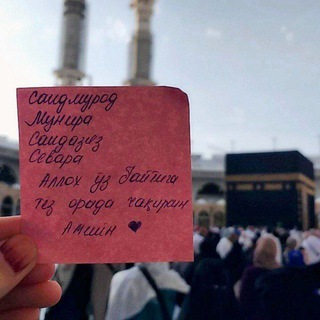 Саидмурод
Мунира
Саидазез
Севара
Аллох уз байтига
тез орада чакирин
Амийн